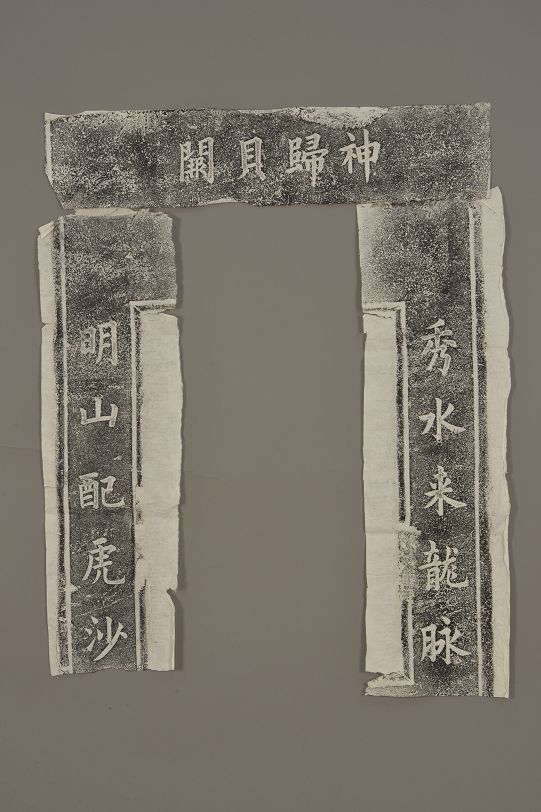 神歸貝闕
秀水来龍脉
明山配虎沙